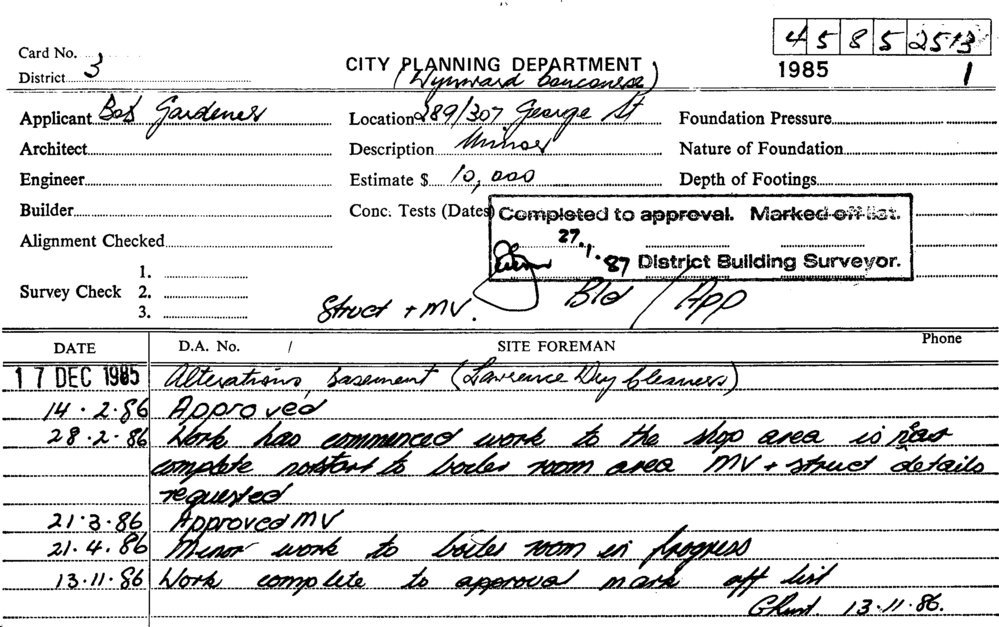 Card No.
District 3
CITY PLANNING DEPARTMENT
(Wynyard Concourse)
4 5 8 5 2513
1985 1
Applicant Bob Gardener
Location 289/307 George St
Foundation Pressure
Architect
Description Minor
Nature of Foundation
Engineer
Estimate $ 10,000
Depth of Footings
Builder
Conc. Tests (Dates)
Completed to approval. Marked off list.
27.1.87 District Building Surveyor.
Alignment Checked
Survey Check
1.
2.
3.
Struct + MV.
Bld / App
DATE D.A. No. / SITE FOREMAN Phone
17 DEC 1985 Alterations, basement (Lawrence Dry Cleaners)
14.2.86 Approved
28.2.86 Work has commenced work to the shop area is near
complete no start to boiler room area MV + struct details
requested
21.3.86 Approved MV
21.4.86 Minor work to boiler room in progress
13.11.86 Work complete to approval mark off list
13.11.86.